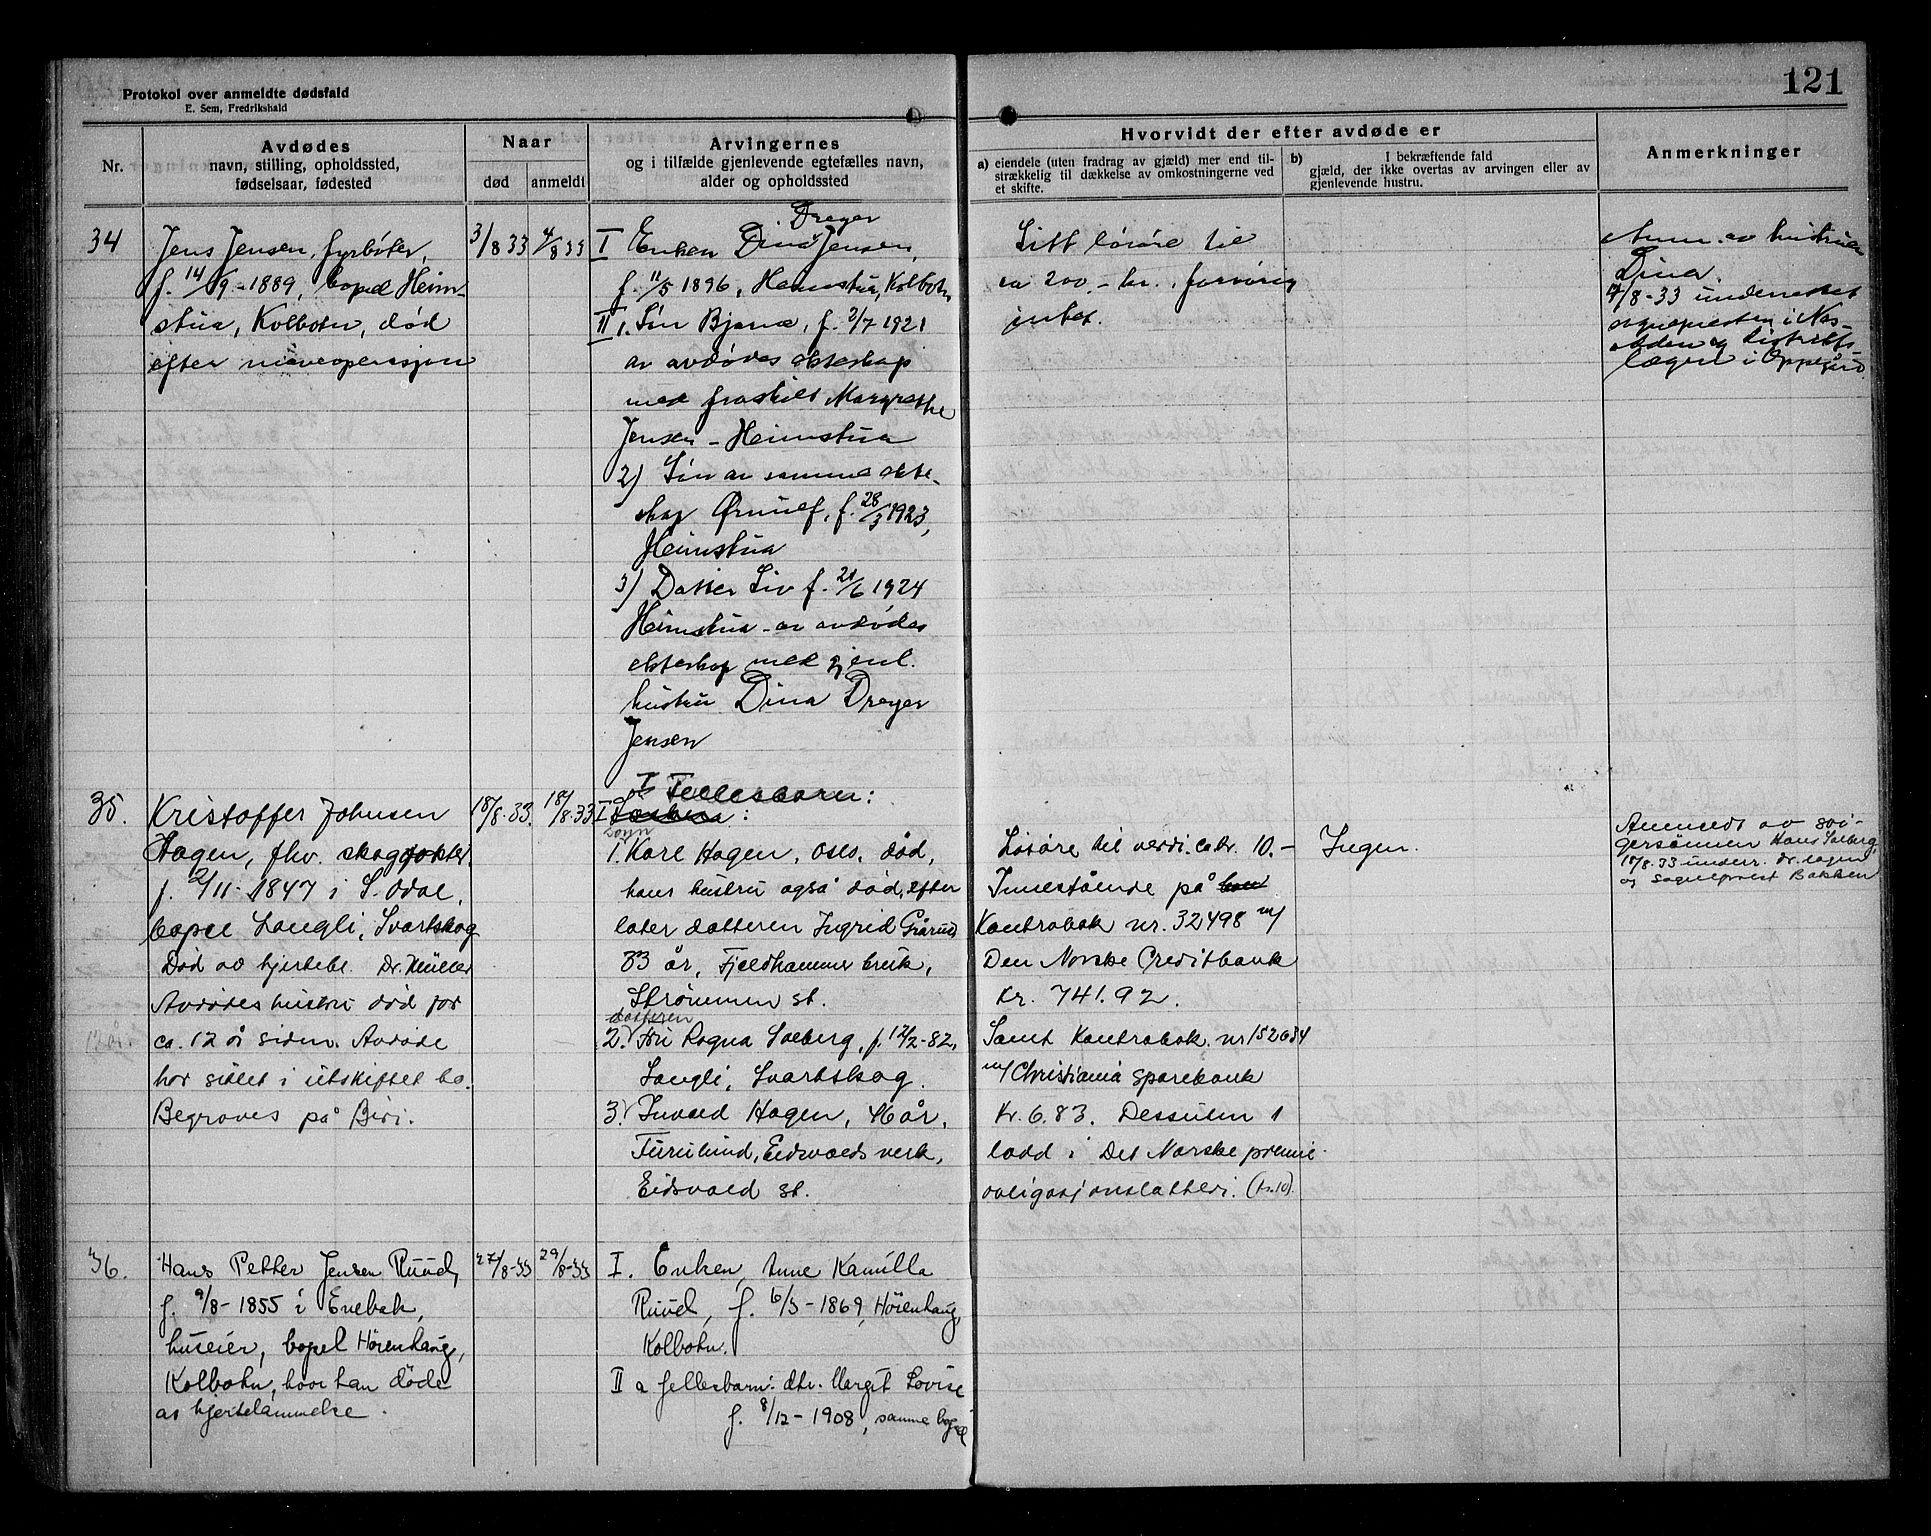 121
Protokol over anmeldte dødsfald
E. Sem, Fredrikshald
Nr.
Avdødes
navn, stilling, opholdssted,
fødselsaar, fødested
Naar
død
anmeldt
Arvingernes
og i tilfælde gjenlevende egtefælles navn,
alder og opholdssted
Hvorvidt der efter avdøde er
a) eiendele (uten fradrag av gjæld) mer end til-
strækkelig til dækkelse av omkostningerne ved
et skifte.
b) I bekræftende fald
gjæld, der ikke overtas av arvingen eller av
gjenlevende hustru.
Anmerkninger
34
Jens Jensen, fyrbøter,
f. 14/9-1889, bopel Heim-
stua, Kolbotn, død
efter maveoperasjon
3/8 33
4/8 33
Dreyer
I Enken Dina Jensen,
f. 11/5 1896, Heimstua, Kolbotn
II 1. Søn Bjarne, f. 2/7 1921
av avdødes ekteskap
med fraskilt Margrethe
Jensen - Heimstua
2) Søn av samme ekte-
skap Ørnulf, f. 28/3 1923,
Heimstua
3) Datter Liv f. 21/6 1924
Heimstua - av avdødes
ekteskap med gjenl.
hustru Dina Dreyer
Jensen
Litt løsøre til
ca 200,- kr. forøvrig
intet.
Anm. av hustruen
Dina.
7/8-33 underrettet
sognepresten i Nes-
odden og distrikts-
lægen i Oppegård
35.
Kristoffer Johnsen
Hagen, fhv. skogfokter
f. 2/11-1847 i S. Odal,
bopel Langli, Svartskog
Død av hjertebl. Dr. Müller
Avdødes hustru død for
ca. 12 år siden. Avdøde
har sittet i uskiftet bo.
Begraves på Biri.
18/8-33.
18/8-33
I Fellesbarn:
I
sønn
1. Karl Hagen, Oslo, død,
hans hustru også død, efter
later datteren Ingrid Grårud
33 år, Fjeldhammer bruk,
Strømmen st.
datteren
2. Fru Ragna Solberg, f. 12/2-82,
Langli, Svartskog.
3. Invald Hagen, 46 år,
Furulund, Eidsvolds verk,
Eidsvold st.
Løsøre til verdi ca kr. 10.-
Innestående på
Kontrabok nr. 32498 m/
Den Norske Creditbank
Kr. 741.92.
Samt Kontrabok nr 152634
m/ Christiania Sparebank
Kr. 6.83. Dessuten 1
lodd i Det Norske premie-
obligasjonslotteri. (kr.10).
Ingen.
Anmeldt av svi-
gersønnen Hans Solberg,
18/8.33 underr. dr. lægen
og Sogneprest Bakken
36.
Hans Petter Jensen Ruud,
f. 9/8-1855 i Enebak,
huseier, bopel Hørenhaug,
Kolbotn, hvor han døde
av hjertelammelse.
27/8-33
29/8-33
I. Enken Anne Kamilla
Ruud, f. 6/3-1869, Hørenhaug,
Kolbotn.
II a fellesbarn: dtr. Margit Lovise
f. 8/12-1908, samme bopel